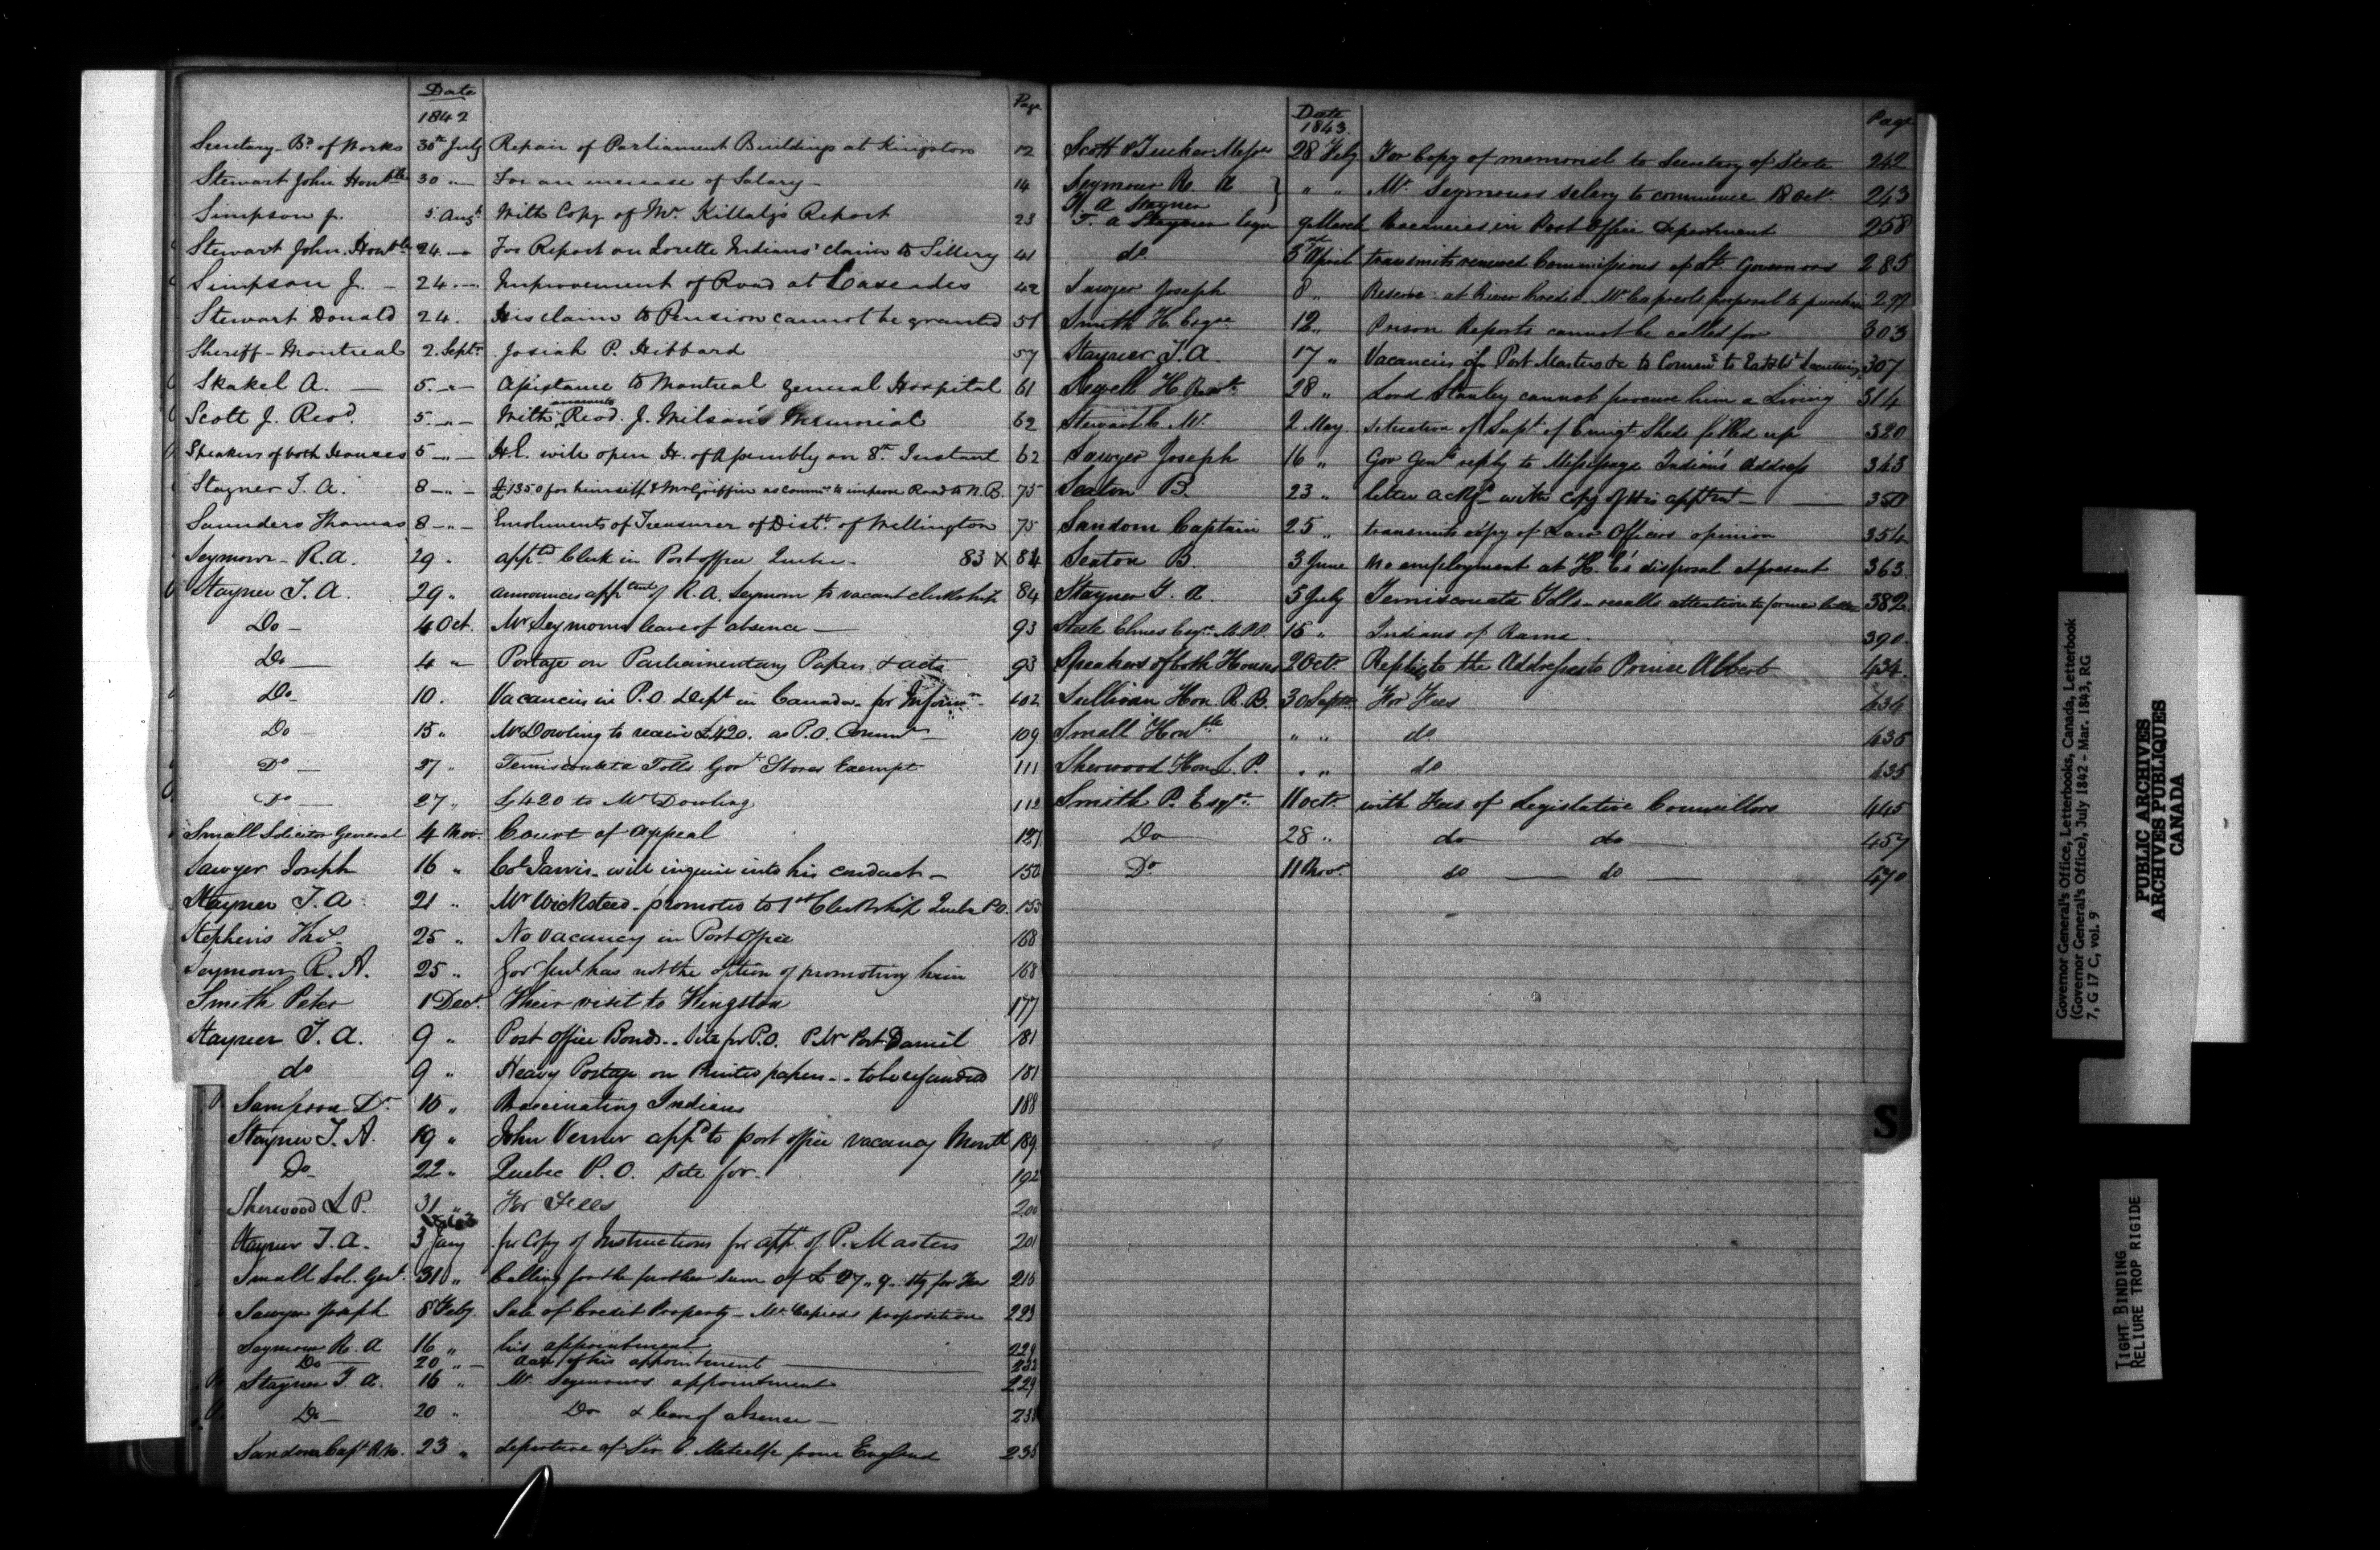 Date
1842
Page
Secretary Bd. of Works 30th July Repair of Parliament Buildings at Kingston 12
Stewart John Honble 30 " For an increase of Salary 14
Simpson J. 5 Augt. With Copy of Mr. Killaly's Report 23
Stewart John Honble 24 For Report on Lorette Indians' claim to Sillery 41
Simpson J. 24 Improvement of Road at Cascades 42
Stewart Donald 24. His claim to Pension cannot be granted 51
Sheriff - Montreal 2. Septr. Josiah P. Hibbard 57
Skakel A. 5. " Assistance to Montreal General Hospital 61
Scott J. Revd. 5. " With Revd. J. Wilson's Memorial 62
Speakers of both Houses 5 " H.E. will open H. of Assembly on 8th. Instant 62
Stayner T. A. 8 " £1350 for himself & Mr Griffin as Commrs to improve Road to N.B. 75
Saunders Thomas 8 " Emoluments of Treasurer of Distt. of Wellington 75
Seymour R.A. 29 " appd. Clerk in Post office Quebec 83 X 84
Stayner T. A. 29 " announces apptmt of R. A. Seymour to vacant clerkship 84
Do 4 Oct. Mr Seymours leave of absence 93
Do 4 " Postage on Parliamentary Papers & acts 93
Do 10. Vacancies in P.O. Dept in Canada for Inform 102
Do 15 " Mr Dowling to receive £420. as P.O. Commr 109
Do 27 " Temiscouata Tolls Govt Stores Exempt 111
Do 27 " £420 to Mr Dowling 112
Small Solicitor General 4 Nov. Court of Appeal 127
Sawyer Joseph 16 " Col Jarvis will inquire into his conduct 150
Stayner T. A 21 " Mr Wicksteed promoted to 1st Clerkship Quebec P.O. 155
Stephens 25 " No vacancy in Post office 168
Seymour R. A. 25 " Gov Genl has not the option of promoting him 168
Smith Peter 1 Decr. Their visit to Kingston 177
Stayner T. A. 9 " Post Office Bonds Site for P.O. P. Mr Port Daniel 181
do 9 " Heavy Postage on Printed papers to be refunded 181
Sampson Dr. 15 " Vaccinating Indians 188
Stayner T. A. 19 " John Verner appd to post office vacancy Montl 189
Do 22 " Quebec P. O. site for 192
Sherwood L P. 31 " For Fees 200
1843
Stayner T. A. 3 Jany for Copy of Instructions for appt. of P. Masters 201
Small Sol. Genl. 31 " Calling for the further sum of £ 27 " 9 for Fees 216
Sawyer Joseph 8 Feby. Sale of Credit Property - Mr. proposition 223
Seymour R. A 16 " his appointment 229
Do 20 " of his appointment 232
Stayner T. A. 16 " Mr. Seymours appointment 229
Do 20 " Do & leave of absence 233
Sandom Capt. R.N. 23 " departure of Sir C. Metcalfe from England 235
Date
1843.
Page
Scott & Tucker Messrs 28 Feby For Copy of memorial to Secretary of State 242
Seymour R. A } " " Mr. Seymours salary to commence 18 Octr. 243
T. A Stayner
T. A Stayner Esqr 9 March Vacancies in Post Office Department 258
do 3rd April transmits renewed Commissions of Lt. Governors 285
Sawyer Joseph 8 " Reserve at River Credit Mr proposal to purchase 297
Smith H. Esqre 12 " Prison Reports cannot be called for 303
Stayner T. A. 17 " Vacancies of Post Masters &c 307
Sewell H. 28 " Lord Stanley cannot procure him a Living 314
Stewart C. M. 2 May situation of Supt. of Emigt Sheds filled up 320
Sawyer Joseph 16 " Gov Genls reply to Messissaga Indians address 343
Seaton B. 23 " letter ackgd with copy of his apptmt 350
Sandom Captain 25 " transmits copy of Law Officers opinion 354
Seaton B. 3 June no employment at H. E's disposal at present 363
Stayner T. A. 5 July Temiscouata Tolls recalls attention to former letter 382
Steele Elmes Esqr M.P.P. 15 " Indians of Rama 390.
Speakers of both Houses 2 Octr. Replies to the Addresses to Prince Albert 434.
Sullivan Hon. R. B. 30 Septr For Fees 434
Small Honble " " do 435
Sherwood Hon L. P. " " do 435
Smith P. Esqre. 11 Octr. with Fees of Legislative Councillors 445
Do 28 " do do 457
Do 11 Novr. do do 470
S
Governor General's Office, Letterbooks, Canada, Letterbook
(Governor General's Office), July 1842 - Mar. 1843, RG
7, G 17 C, vol. 9
PUBLIC ARCHIVES
ARCHIVES PUBLIQUES
CANADA
TIGHT BINDING
RELIURE TROP RIGIDE